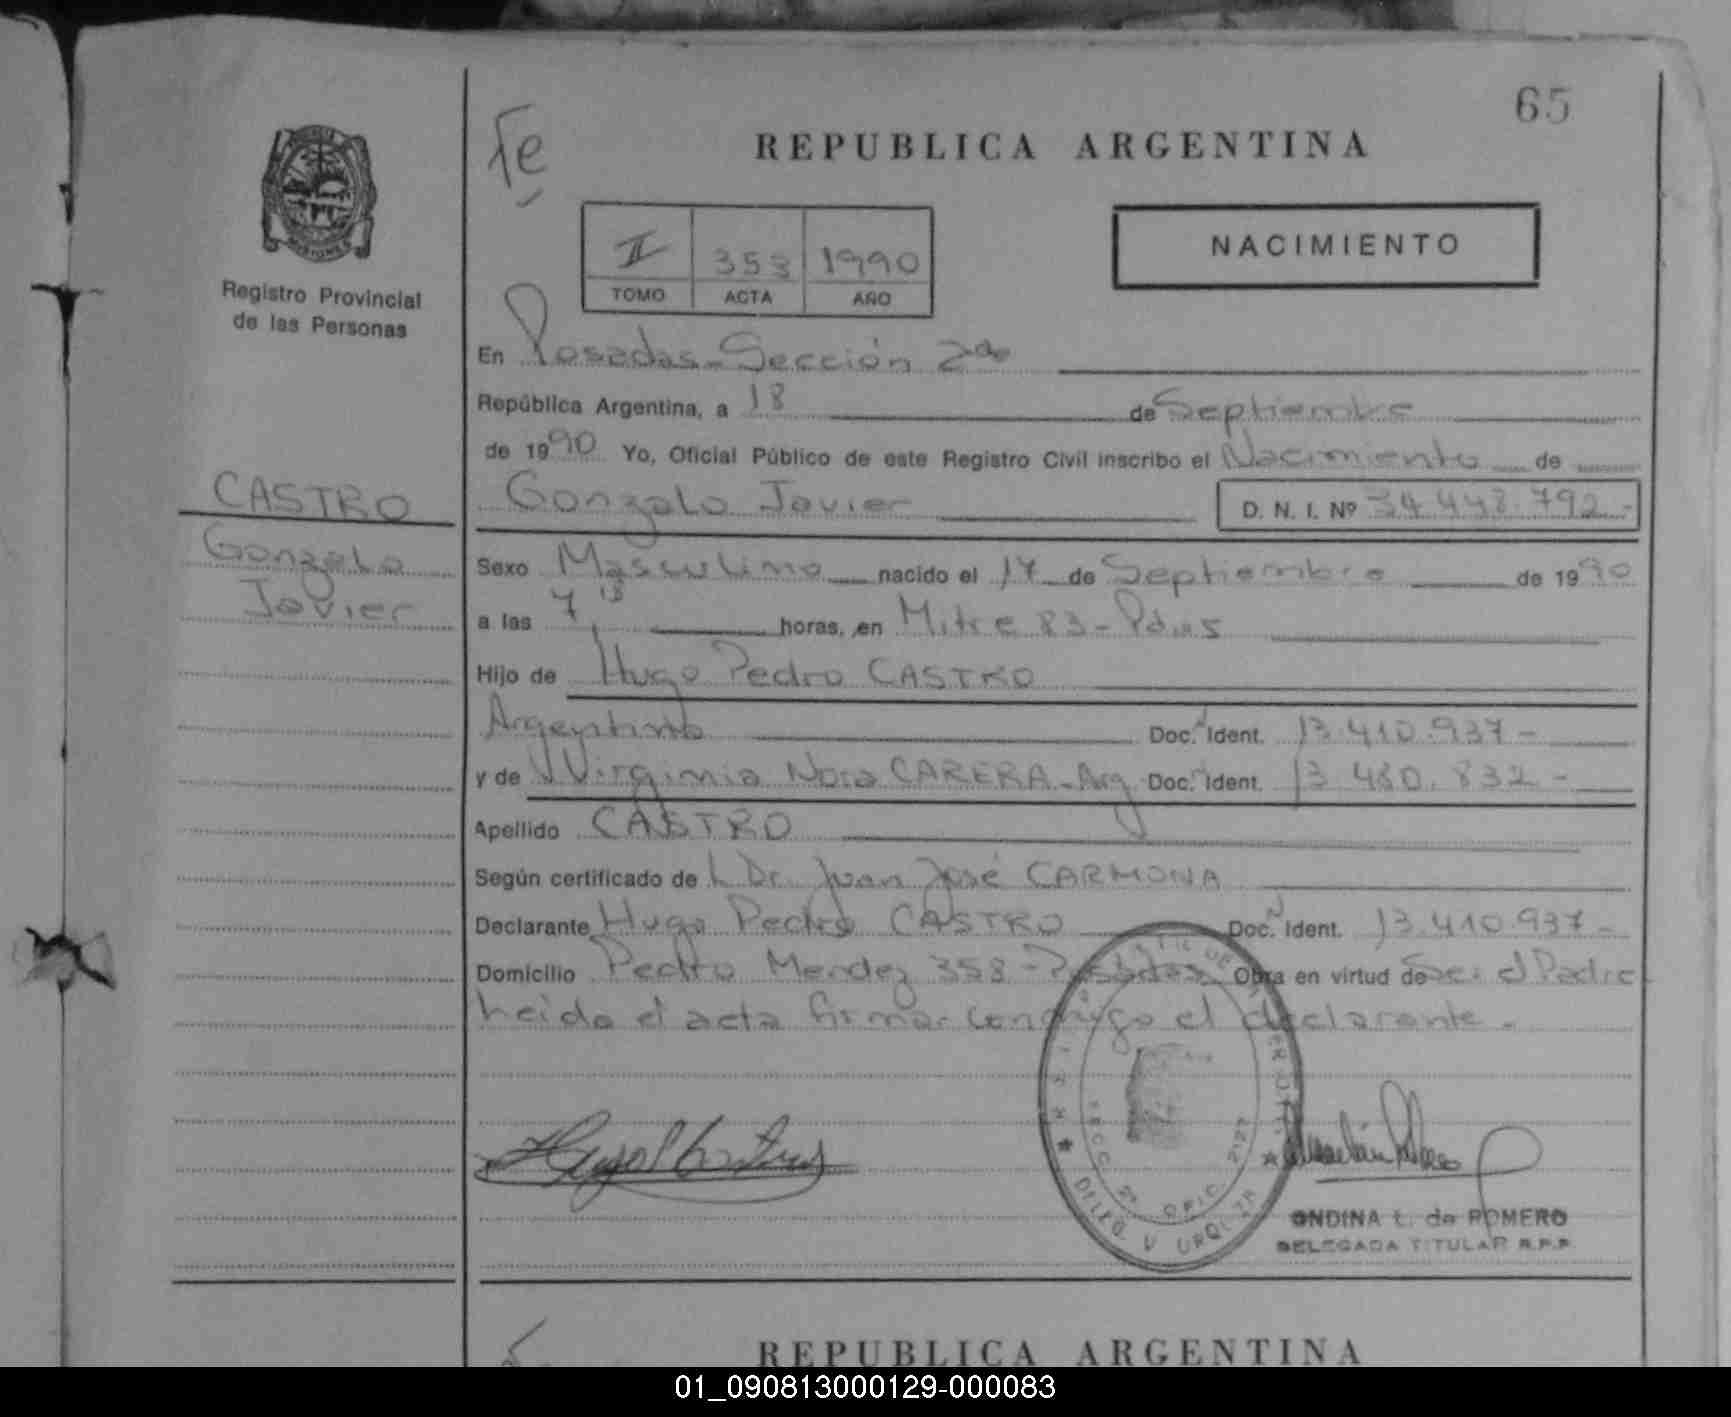 65
Fe
REPUBLICA ARGENTINA
II 353 1990
TOMO ACTA AÑO
NACIMIENTO
MISIONES
Registro Provincial
de las Personas
En Posadas-Sección 2da
República Argentina, a 18 de Septiembre
de 1990 Yo, Oficial Público de este Registro Civil inscribo el Nacimiento de
CASTRO
Gonzalo
Javier
Gonzalo Javier D. N. I. Nº 34.448.792-
Sexo Masculino nacido el 17 de Septiembre de 1990
a las 7,15 horas, en Mitre 83-Pdas
Hijo de Hugo Pedro CASTRO
Argentino Doc. Ident. 13.410.937-
y de Virginia Nora CARERA-Arg Doc. Ident. 13.480.832-
Apellido CASTRO
Según certificado de L Dr. Juan José CARMONA
Declarante Hugo Pedro CASTRO Doc. Ident. 13.410.937-
Domicilio Pedro Mendez 358-Posadas Obra en virtud de Ser el Padre
Leida el acta firma conmigo el declarante-
SECC. 2ª OFIC. 2127
DELEG. V. URQUIZA
ONDINA L. de ROMERO
DELEGADA TITULAR R.P.P.
REPUBLICA ARGENTINA
01_090813000129-000083